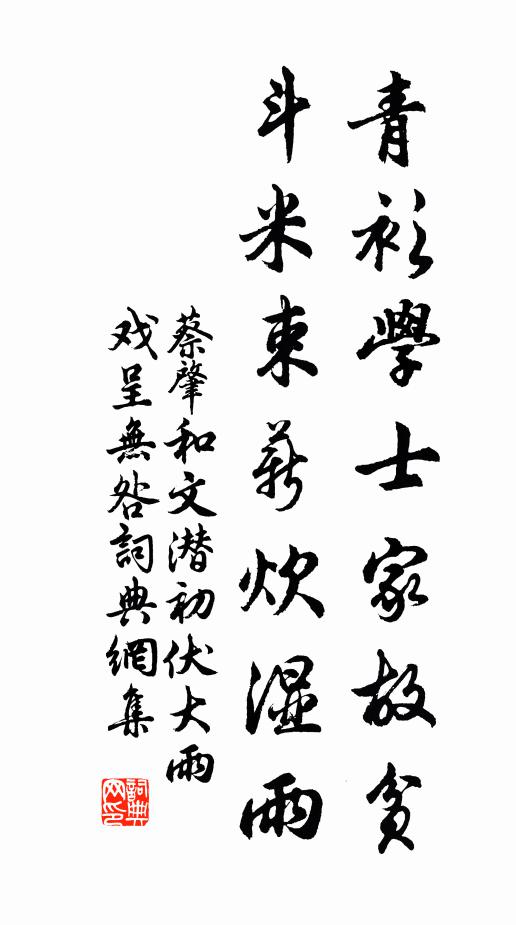 青衫學士家故貧
斗米束薪炊濕雨
蔡肇和文潜初伏大雨
戏呈無咎詞典網集
詞典網印